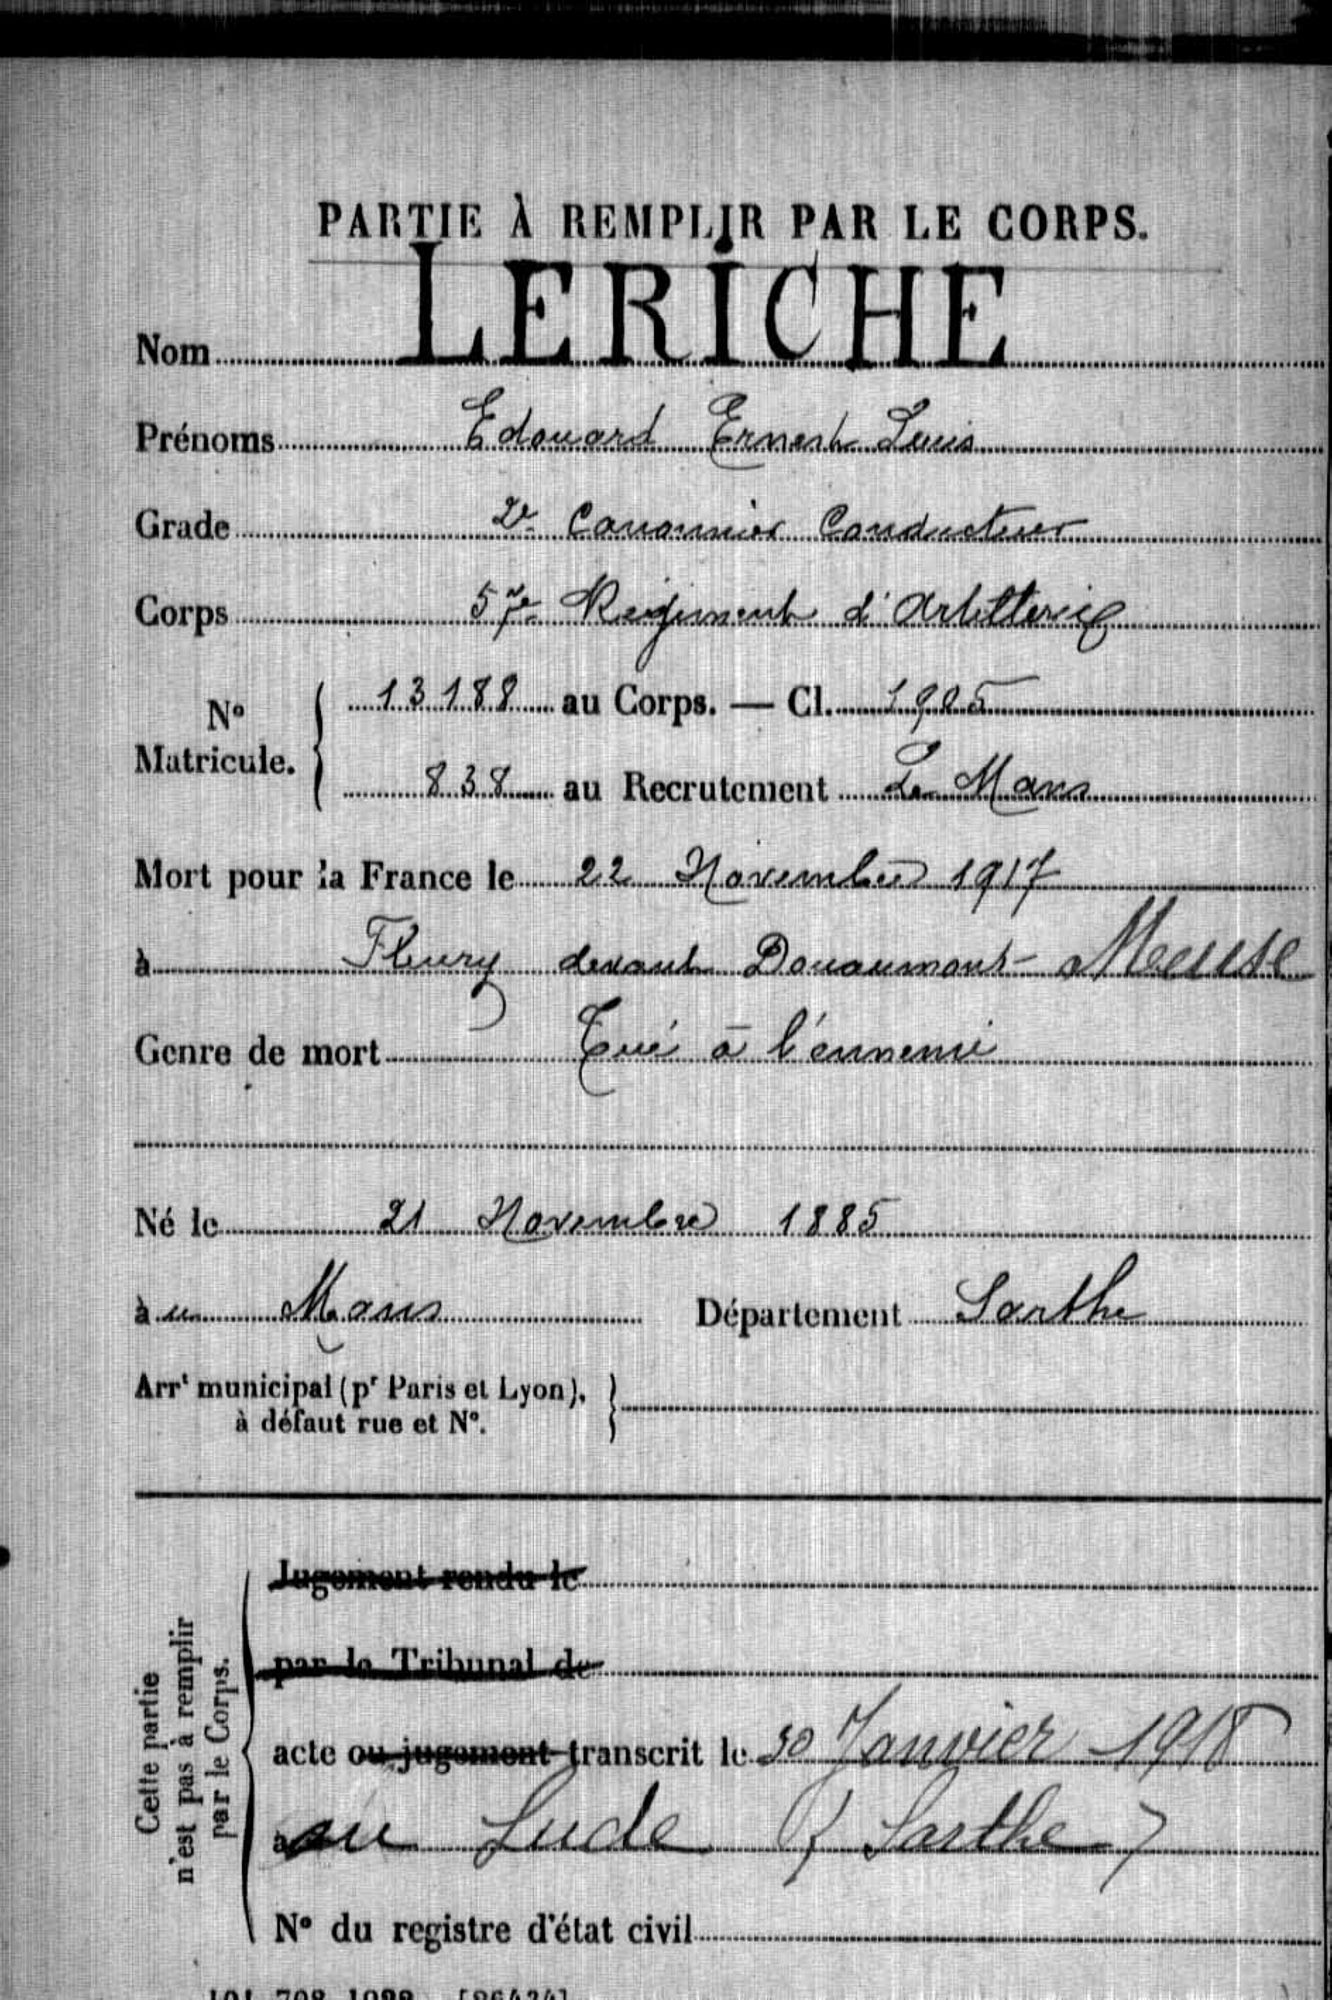 PARTIE À REMPLIR PAR LE CORPS.
Nom LERICHE
Prénoms Edouard Ernest Louis
Grade 2e Canonnier Conducteur
Corps 57e Régiment d'Artillerie
N° Matricule. 13188 au Corps. — Cl. 1905
838 au Recrutement Le Mans
Mort pour la France le 22 Novembre 1917
à Fleury devant Douaumont - Meuse
Genre de mort Tué à l'ennemi
Né le 21 Novembre 1885
au Mans Département Sarthe
Arrt municipal (pr Paris et Lyon),
à défaut rue et N°.
Cette partie
n'est pas à remplir
par le Corps.
Jugement rendu le
par le Tribunal de
acte ou jugement transcrit le 30 Janvier 1918
au Lude (Sarthe)
N° du registre d'état civil
101-708-1922. [26434]